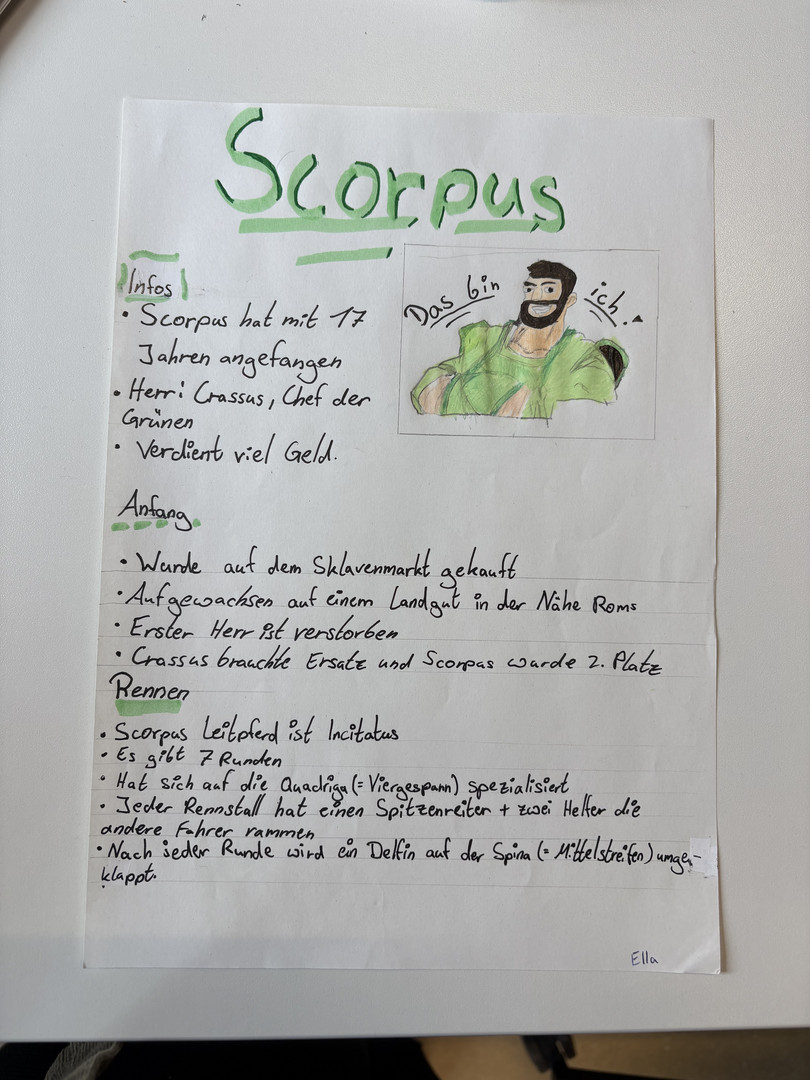 Scorpus
Infos
Das bin ich.
• Scorpus hat mit 17
Jahren angefangen
• Herr: Crassus, Chef der
Grünen
• Verdient viel Geld.
Anfang
• Wurde auf dem Sklavenmarkt gekauft
• Aufgewachsen auf einem Landgut in der Nähe Roms
• Erster Herr ist verstorben
• Crassus brauchte Ersatz und Scorpas wurde 2. Platz
Rennen
• Scorpus Leitpferd ist Incitatus
• Es gibt 7 Runden
• Hat sich auf die Quadriga (= Viergespann) spezialisiert
• Jeder Rennstall hat einen Spitzenreiter + zwei Helfer die
andere Fahrer rammen
• Nach jeder Runde wird ein Delfin auf der Spina (= Mittelstreifen) umge-
klappt.
Ella